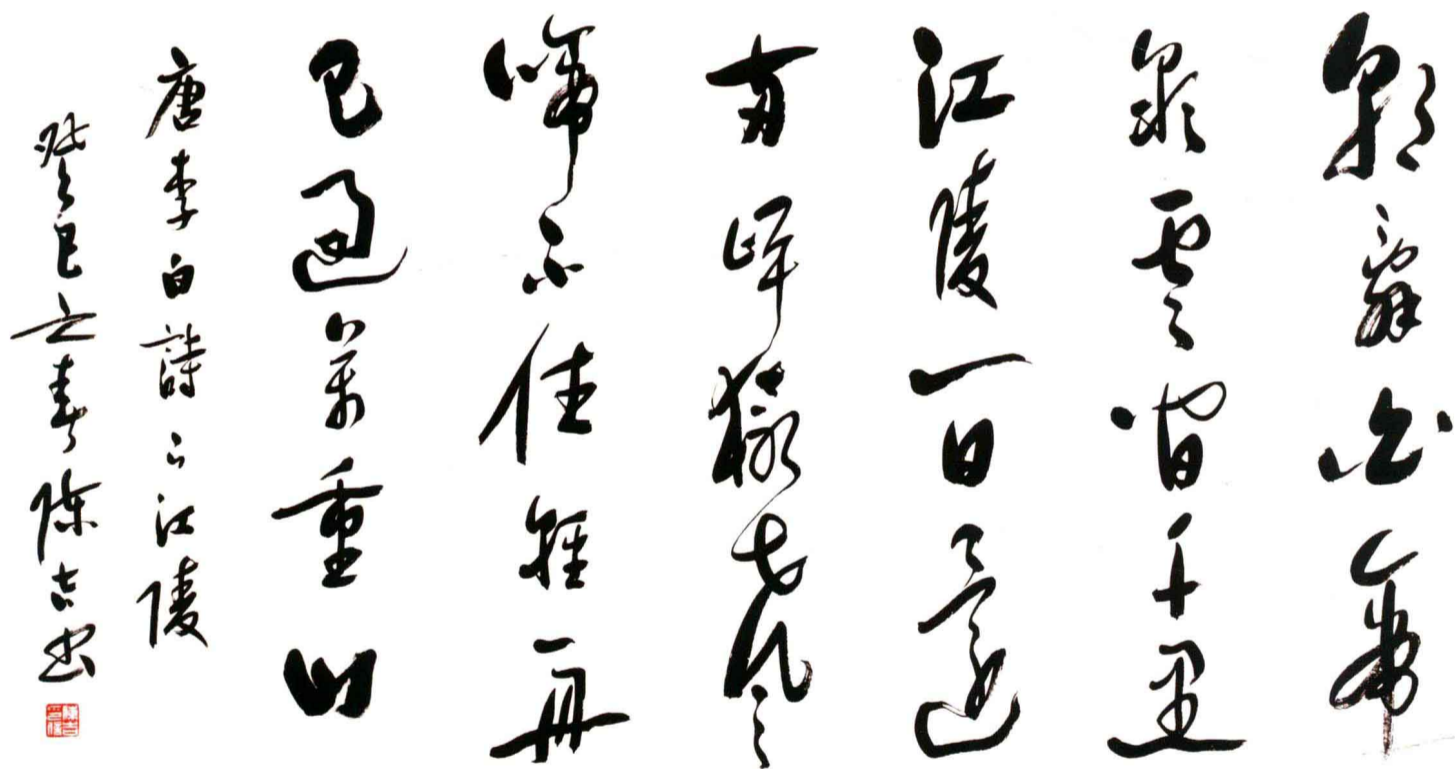 朝辭白帝
彩雲間千里
江陵一日還
两岸猿聲
啼不住輕舟
已過萬重山
唐李白詩下江陵
癸巳立春陳吉書